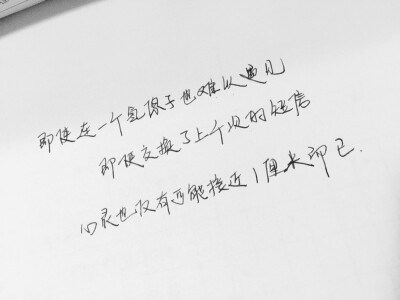 即使连一个氢原子也难以遇见
即便交换了上千次的短信
心灵也仅有可能接近1厘米而已.